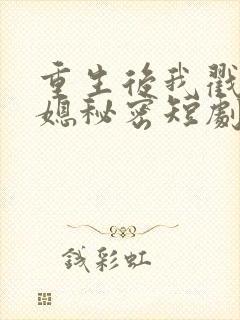 重生後我戳
媳秘密短劇
錢彩虹